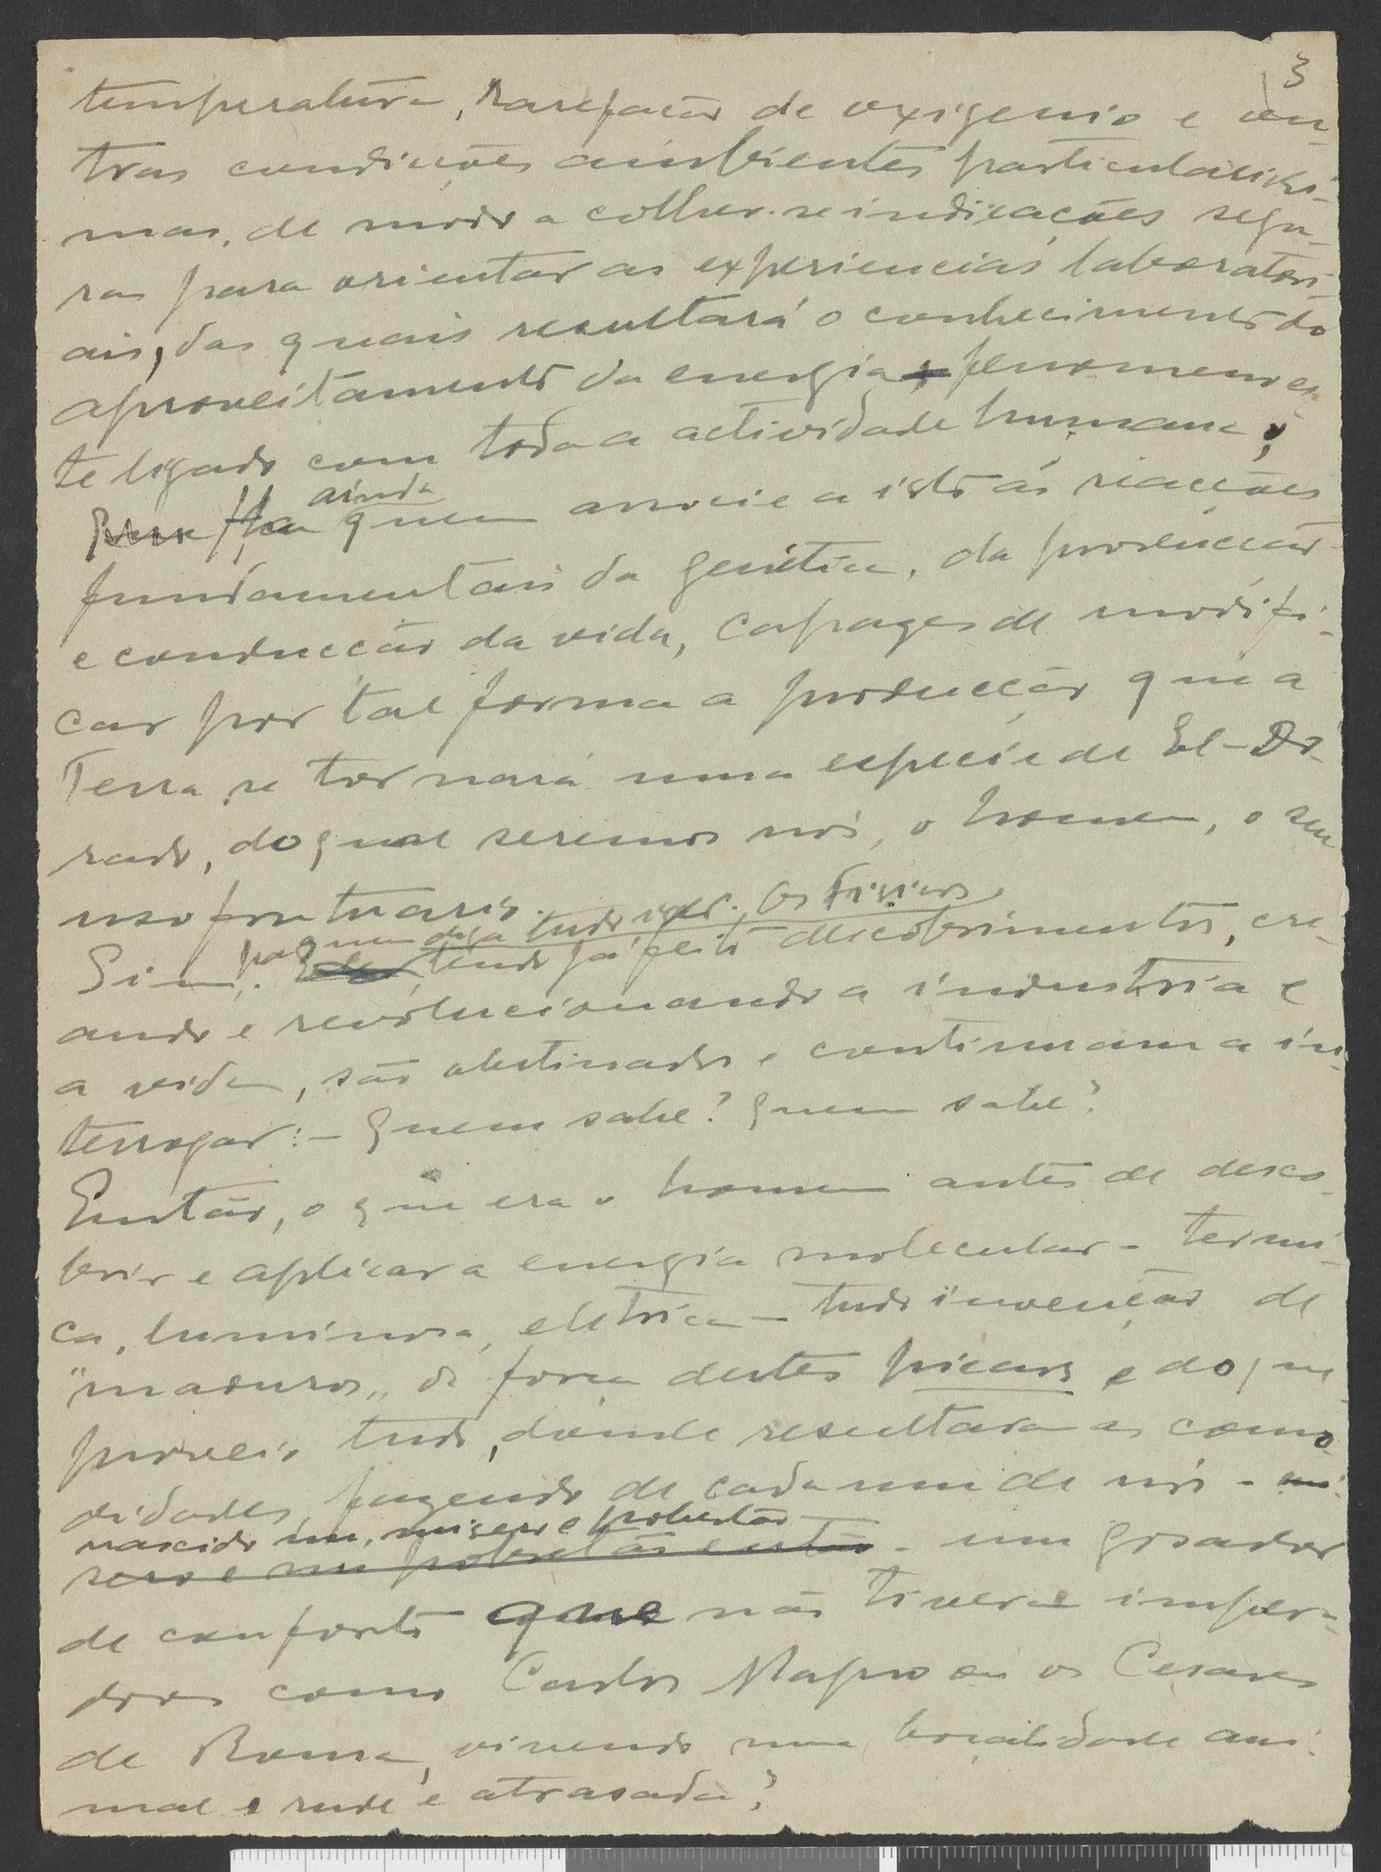 3
temperatura, rarefação de oxigenio e ou-
tras condições ambientes particularissi-
mas, de modo a colher-se indicações segu-
ras para orientar as experiencias laboratori-
ais, das quais resultará o conhecimento do
aproveitamento da energia, fenomeno es-
te ligado com toda a actividade humana;
Ha ainda quem associe a isto ás reacções
fundamentais da genética, da producção
e conducção da vida, capazes de modifi-
car por tal forma a producção que a
Terra se tornará uma especie de El-Do-
rado, do qual seremos nós, o homem, o seu
usofrutuario.
quem diga tudo isso. Os fisicos,
Sim, tendo já feito descobrimentos, cre-
ando e revolucionando a industria e
a vida, são obstinados e continuam a in-
terrogar: - Quem sabe? Quem sabe?
Então, o que era o homem antes de desco-
brir e aplicar a energia molecular - termi-
ca, luminosa, eletrica - tudo invenção de
"maduros" da força destes fisicos e do que
proveio tudo, donde resultaram as como-
didades, fazendo de cada um de nós -
nascido nu, misero e pobretão
sero e nu pobretão e então - um gosador
de conforto que não tivera impera-
dores como Carlos Magno ou os Cesares
de Roma, vivendo numa boçalidade ani-
mal e rude e atrasada?